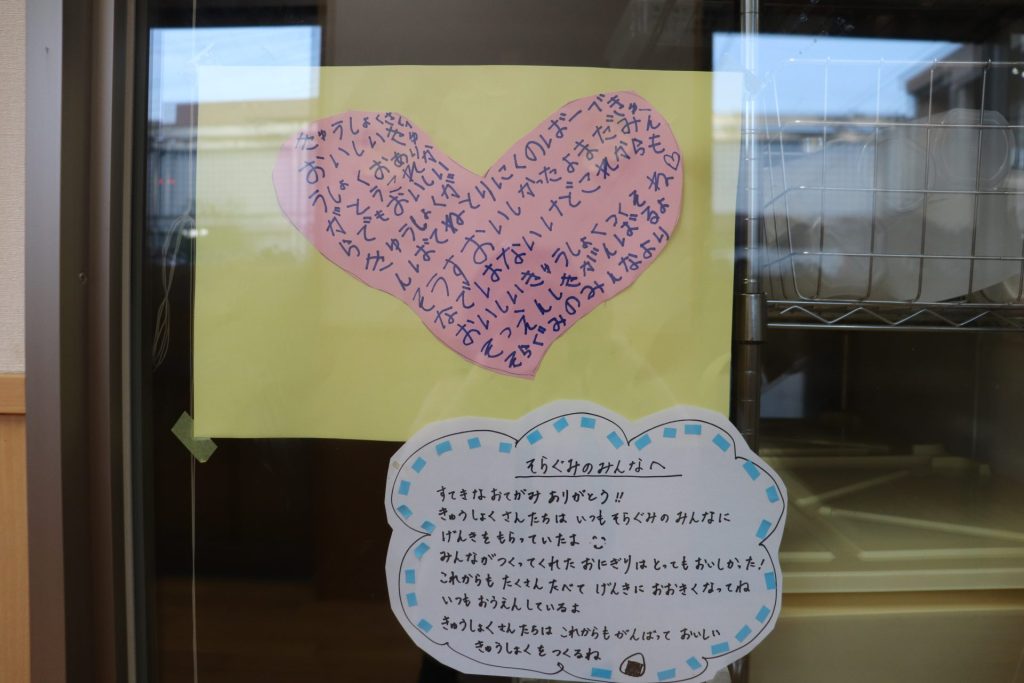 きゅうしょくさん
おいしいきゅ
うしょくおあり
がとうこれか
らでもおいしい
きゅうしょくが
んばてねとりにくのばーべきゅー
そうすおいしかったよまだみん
なではないけどこれからも
おいしいきゅうしょくつくてね♡
そつえんしきがんばるよ
そらぐみのみんなより
そらぐみのみんなへ
すてきな おてがみ ありがとう!!
きゅうしょくさんたちは いつも そらぐみの みんなに
げんきを もらっていたよ
みんなが つくってくれた おにぎりは とっても おいしかった!
これからも たくさん たべて げんきに おおきくなってね
いつも おうえんしているよ
きゅうしょくさんたちは これからも がんばって おいしい
きゅうしょくを つくるね